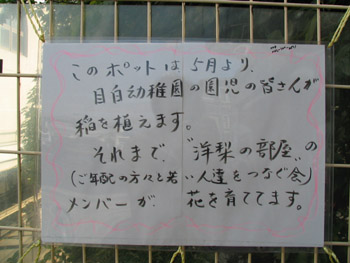 このポットは5月より、
目白幼稚園の園児の皆さんが
稲を植えます。
それまで、"洋梨の部屋"の
(ご年配の方々と若い人達をつなぐ会)
メンバーが、花を育ててます。